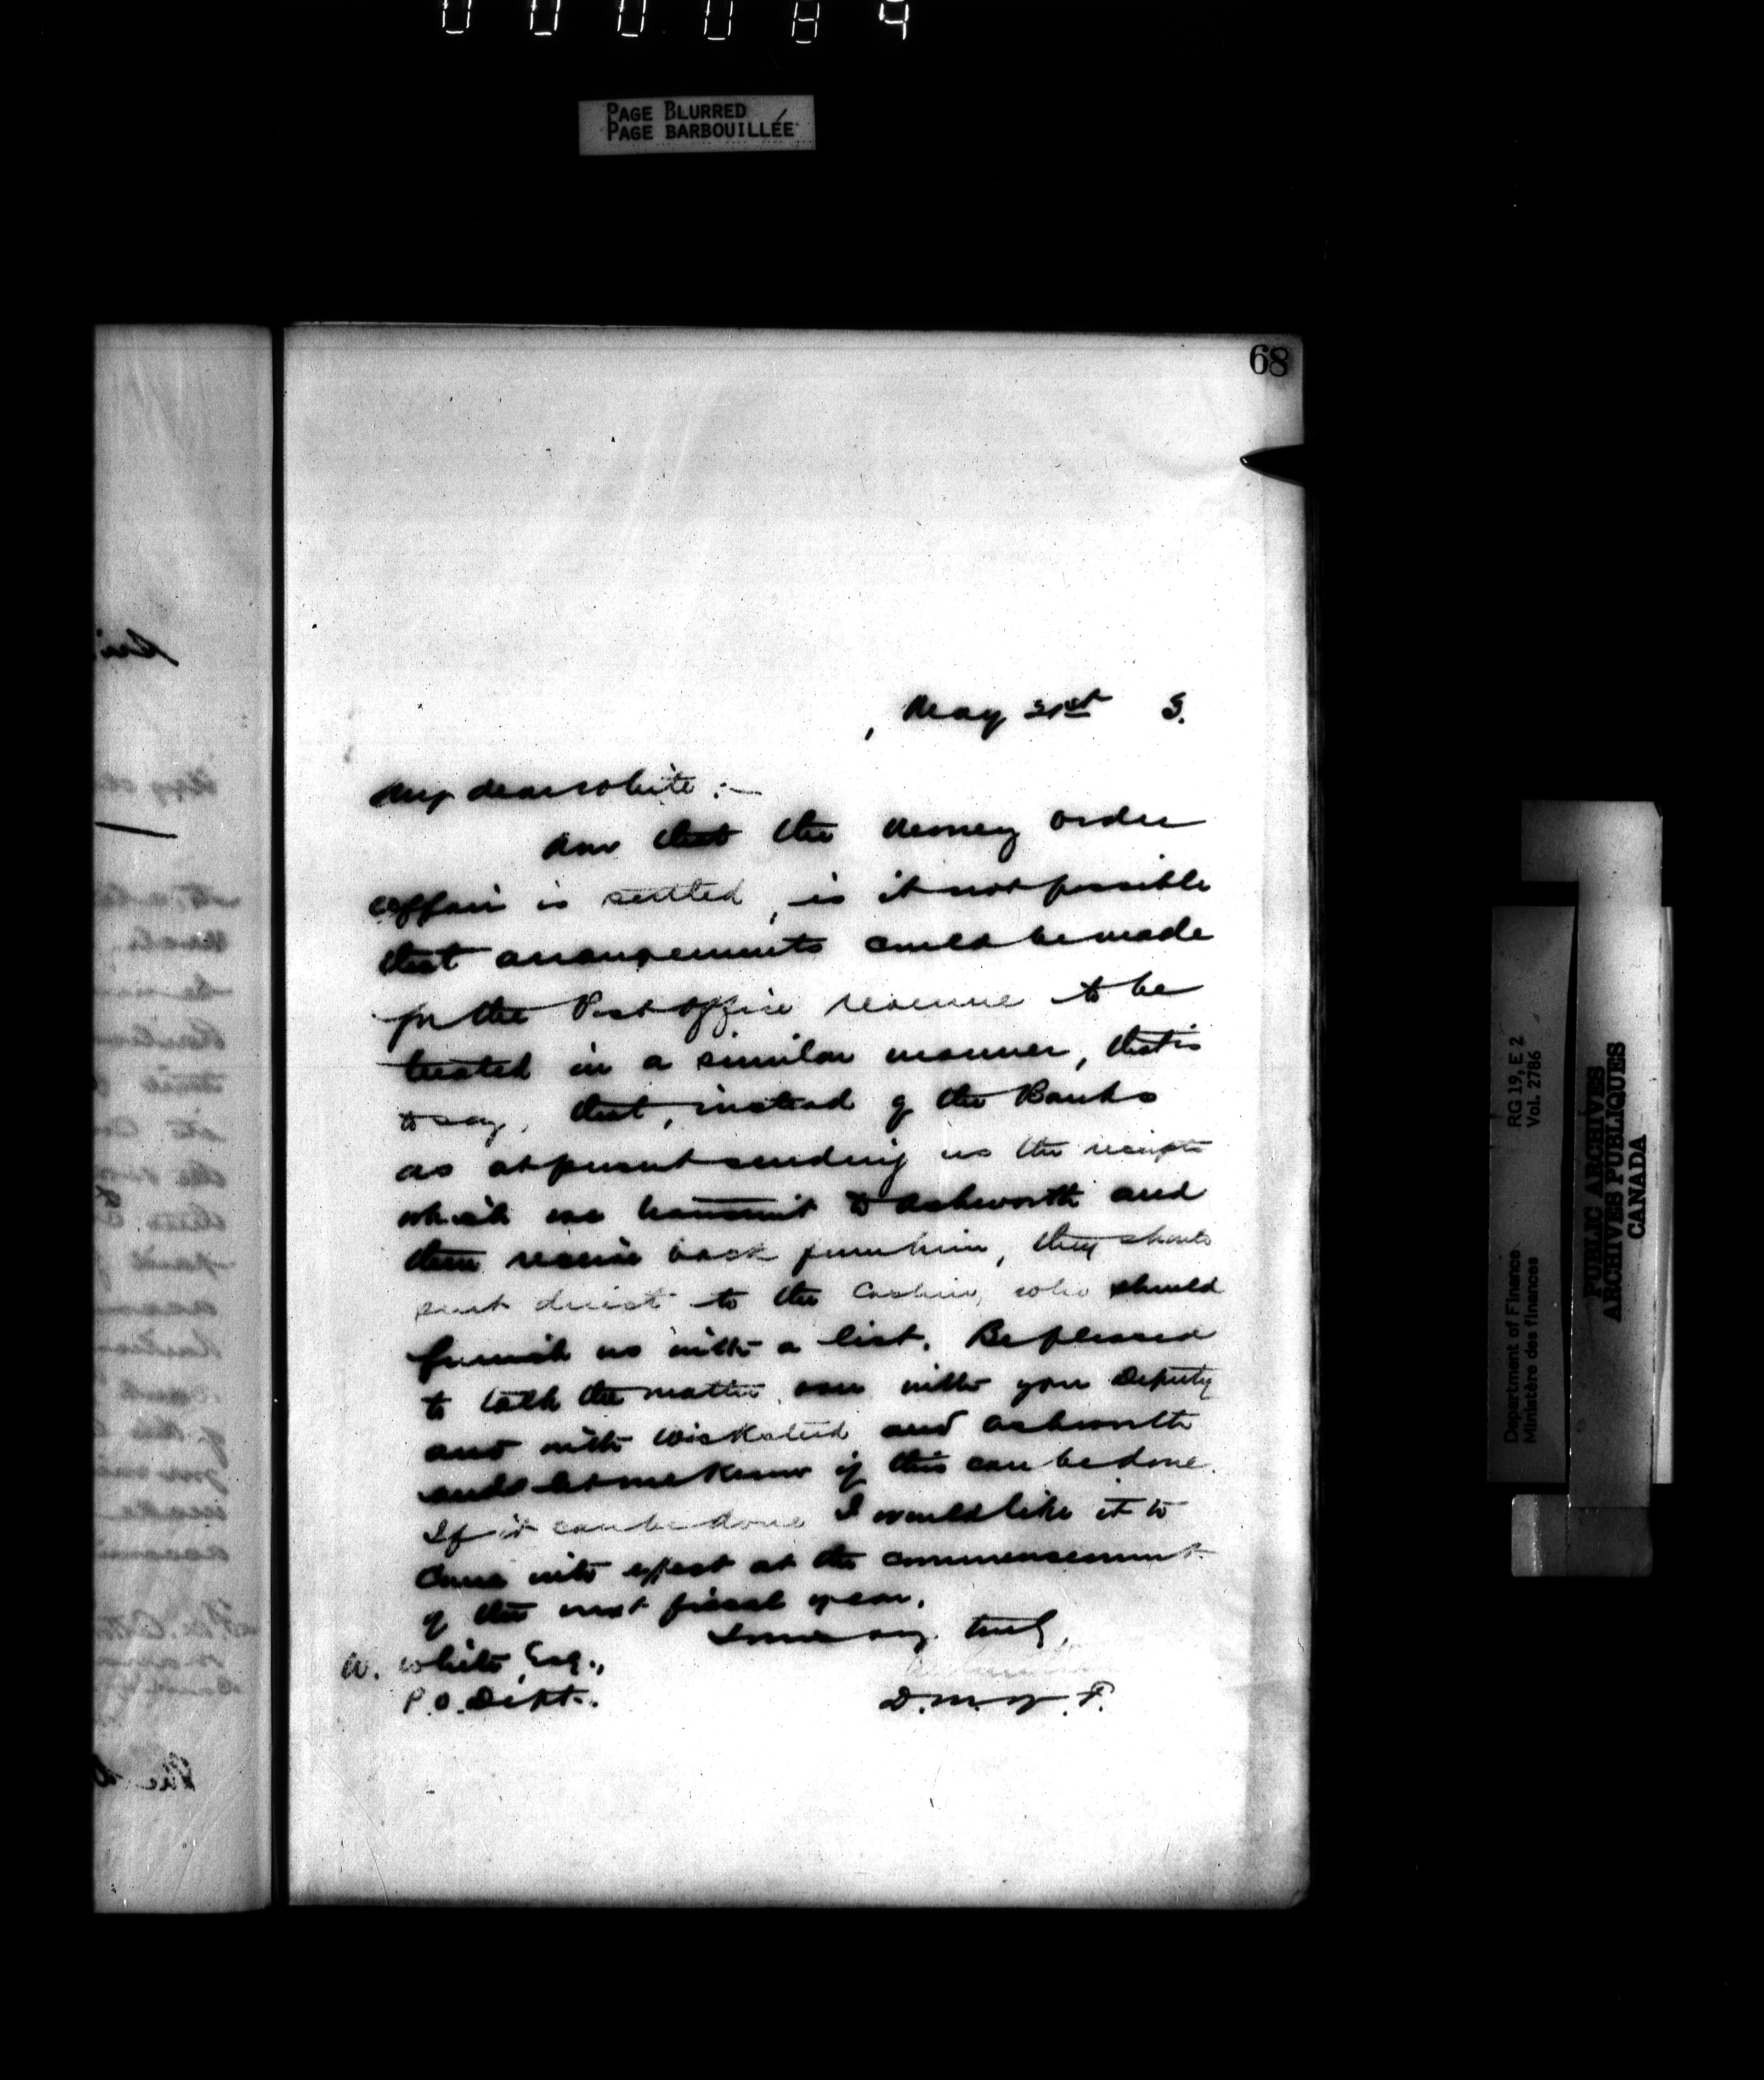 000084
PAGE BLURRED
PAGE BARBOUILLÉE
68
May 31st 3.
My dear White :—
Now that the Money Order
affair is settled, is it not possible
that arrangements could be made
for the Post Office revenue to be
treated in a similar manner, that is
to say, that, instead of the Banks
as at present sending us the receipts
which we transmit to Ashworth and
then receive back from him, they should
send direct to the Cashier, who should
furnish us with a list. Be pleased
to talk the matter over with your Deputy
and with Wicksteed and Ashworth
and let me know if this can be done.
If it can be done I would like it to
come into effect at the commencement
of the next fiscal year.
Yours very truly,
W. White Esq.,
P.O. Dept.
D.M. of F.
Department of Finance RG 19, E 2
Ministère des finances Vol. 2786
PUBLIC ARCHIVES
ARCHIVES PUBLIQUES
CANADA